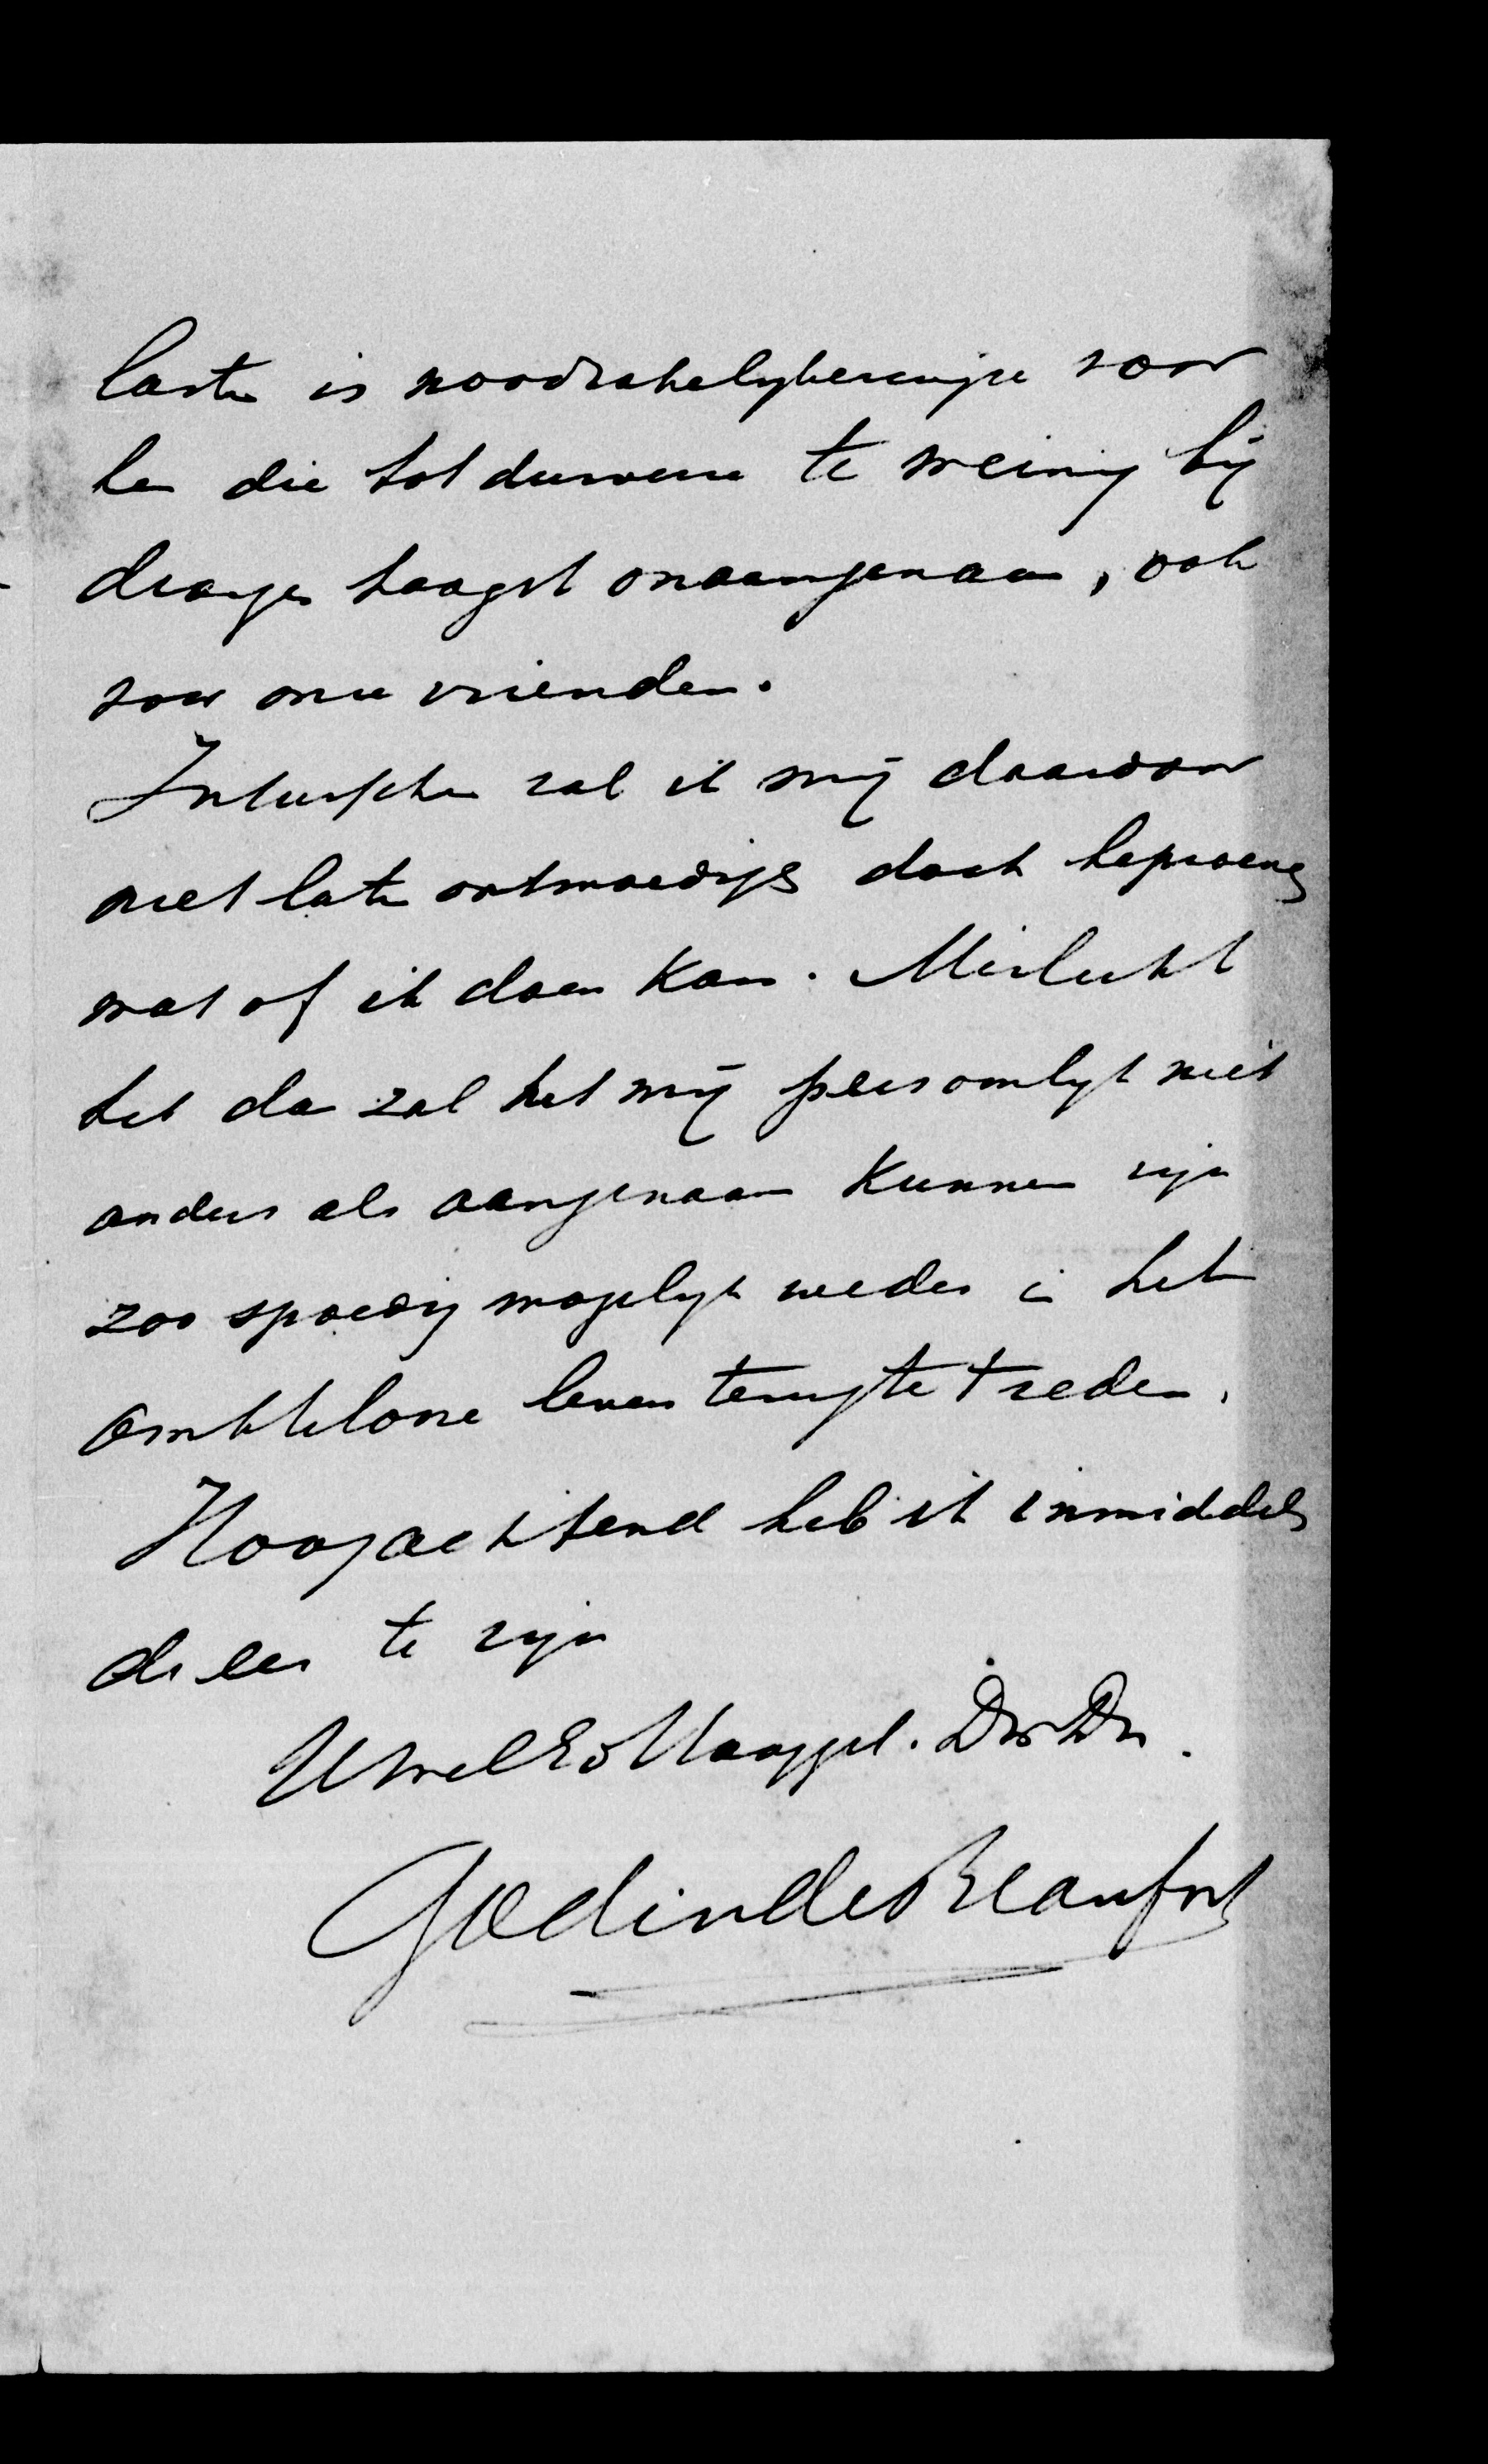 lasten is noodzakelykerwijze voor
hen die tot dusverre te weinig bij
dragen hoogst onaangenaam, ook
voor onze vrienden.
Intusschen zal ik mij daardoor
niet laten ontmoedigen doch beproeven
wat of ik doen kan. Mislukt
het dan zal het mij persoonlyk niet
anders als aangenaam kunnen zijn
zoo spoedig mogelyk weder in het
ambtelooze leven terug te treden.
Hoogachtend heb ik inmiddels
de eer te zijn
UwelEd Hooggel. Dw Dr.
Godin de Beaufort